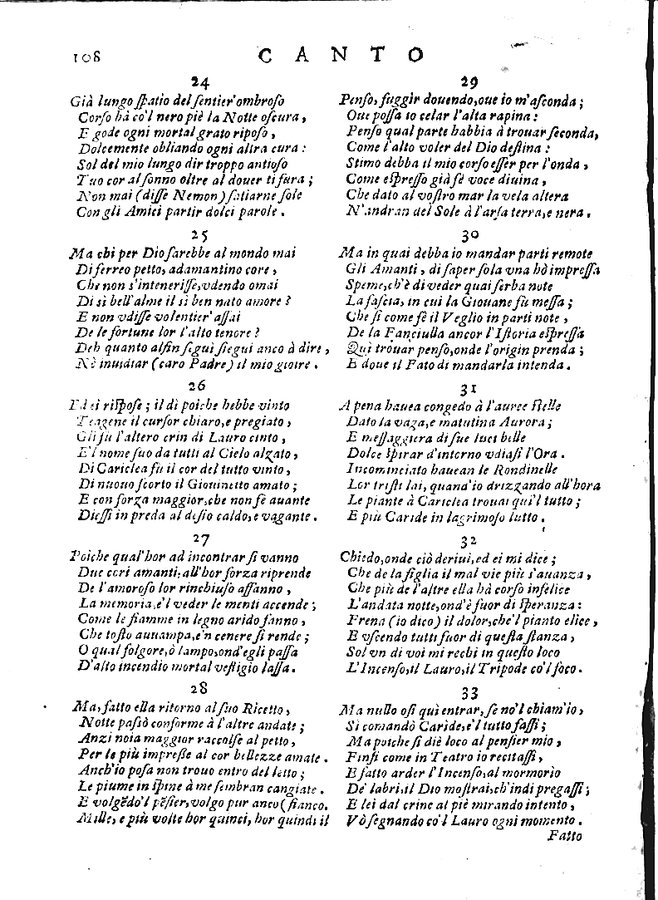 108 CANTO
24
Già lungo spatio del sentier'ombroso
Corso hà co'l nero piè la Notte oscura,
E gode ogni mortal grato riposo,
Dolcemente obliando ogni altra cura:
Sol del mio lungo dir troppo antioso
Tuo cor al sonno oltre al douer ti fura;
Non mai (disse Nemon) satiarne sole
Con gli Amici partir dolci parole.
25
Ma chi per Dio sarebbe al mondo mai
Di ferreo petto, adamantino core,
Che non s'intenerisse, vdendo omai
Di si bell'alme il si ben nato amore?
E non vdisse volentier'assai
De le fortune lor l'alto tenore?
Deh quanto alfin segui siegui anco à dire,
Nè inuidiar (caro Padre) il mio gioire.
26
Ed ei rispose; il dì poiche hebbe vinto
Teagene il cursor chiaro, e pregiato,
Gli fù l'altero crin di Lauro cinto,
E'l nome suo da tutti al Cielo alzato,
Di Cariclea fù il cor del tutto vinto,
Di nuouo scorto il Giouinetto amato;
E con forza maggior, che non fè auante
Diessi in preda al desio caldo, e vagante.
27
Poiche qual'hor ad incontrar si vanno
Due cori amanti: all'hor forza riprende
De l'amoroso lor rinchiuso affanno,
La memoria, e'l veder le menti accende;
Come le fiamme in legno arido fanno,
Che tosto auuampa, e'n cenere si rende;
O qual folgore, ò lampo, ond'egli passa
D'alto incendio mortal vestigio lassa.
28
Ma, fatto ella ritorno al suo Ricetto,
Notte passò conforme à l'altre andate;
Anzi noia maggior raccolse al petto,
Per le più impresse al cor bellezze amate.
Anch'io posa non trouo entro del letto;
Le piume in spine à me sembran cangiate.
E volgēdo'l pēsier, volgo pur anco (fianco.
Mille, e più volte hor quinci, hor quindi il
29
Penso, fuggir douendo, oue io m'asconda;
Oue possa io celar l'alta rapina:
Penso qual parte habbia à trouar seconda,
Come l'alto voler del Dio destina:
Stimo debba il mio corso esser per l'onda,
Come espresso già fè voce diuina,
Che dato al vostro mar la vela altera
N'andran del Sole à l'arsa terra, e nera.
30
Ma in quai debba io mandar parti remote
Gli Amanti, di saper sola vna hò impressa
Speme, ch'è di veder quai serba note
La fascia, in cui la Giouane fù messa;
Che sì come fè il Veglio in parti note,
De la Fanciulla ancor l'Istoria espressa
Qui trouar penso, onde l'origin prenda;
E doue il Fato di mandarla intenda.
31
A pena hauea congedo à l'auree stelle
Dato la vaga, e matutina Aurora;
E messaggiera di sue luci belle
Dolce spirar d'intorno vdiasi l'Ora.
Incominciato hauean le Rondinelle
Lor tristi lai, quand'io drizzando all'hora
Le piante à Cariclea trouai qui'l tutto;
E più Caride in lagrimoso lutto.
32
Chiedo, onde ciò deriui, ed ei mi dice;
Che de la figlia il mal vie più s'auanza,
Che più de l'altre ella hà corso infelice
L'andata notte, ond'è fuor di speranza:
Frena (io dico) il dolor, che'l pianto elice,
E vscendo tutti fuor di questa stanza,
Sol vn di voi mi rechi in questo loco
L'Incenso, il Lauro, il Tripode co'l foco.
33
Ma nullo osi quì entrar, se no'l chiam'io,
Sì comandò Caride, e'l tutto fassi;
Ma poiche si diè loco al pensier mio,
Finsi come in Teatro io recitassi,
E fatto arder l'Incenso, al mormorio
De' labri, il Dio mostrai, ch'indi pregassi;
E lei dal crine al piè mirando intento,
Vò segnando co'l Lauro ogni momento.
Fatto